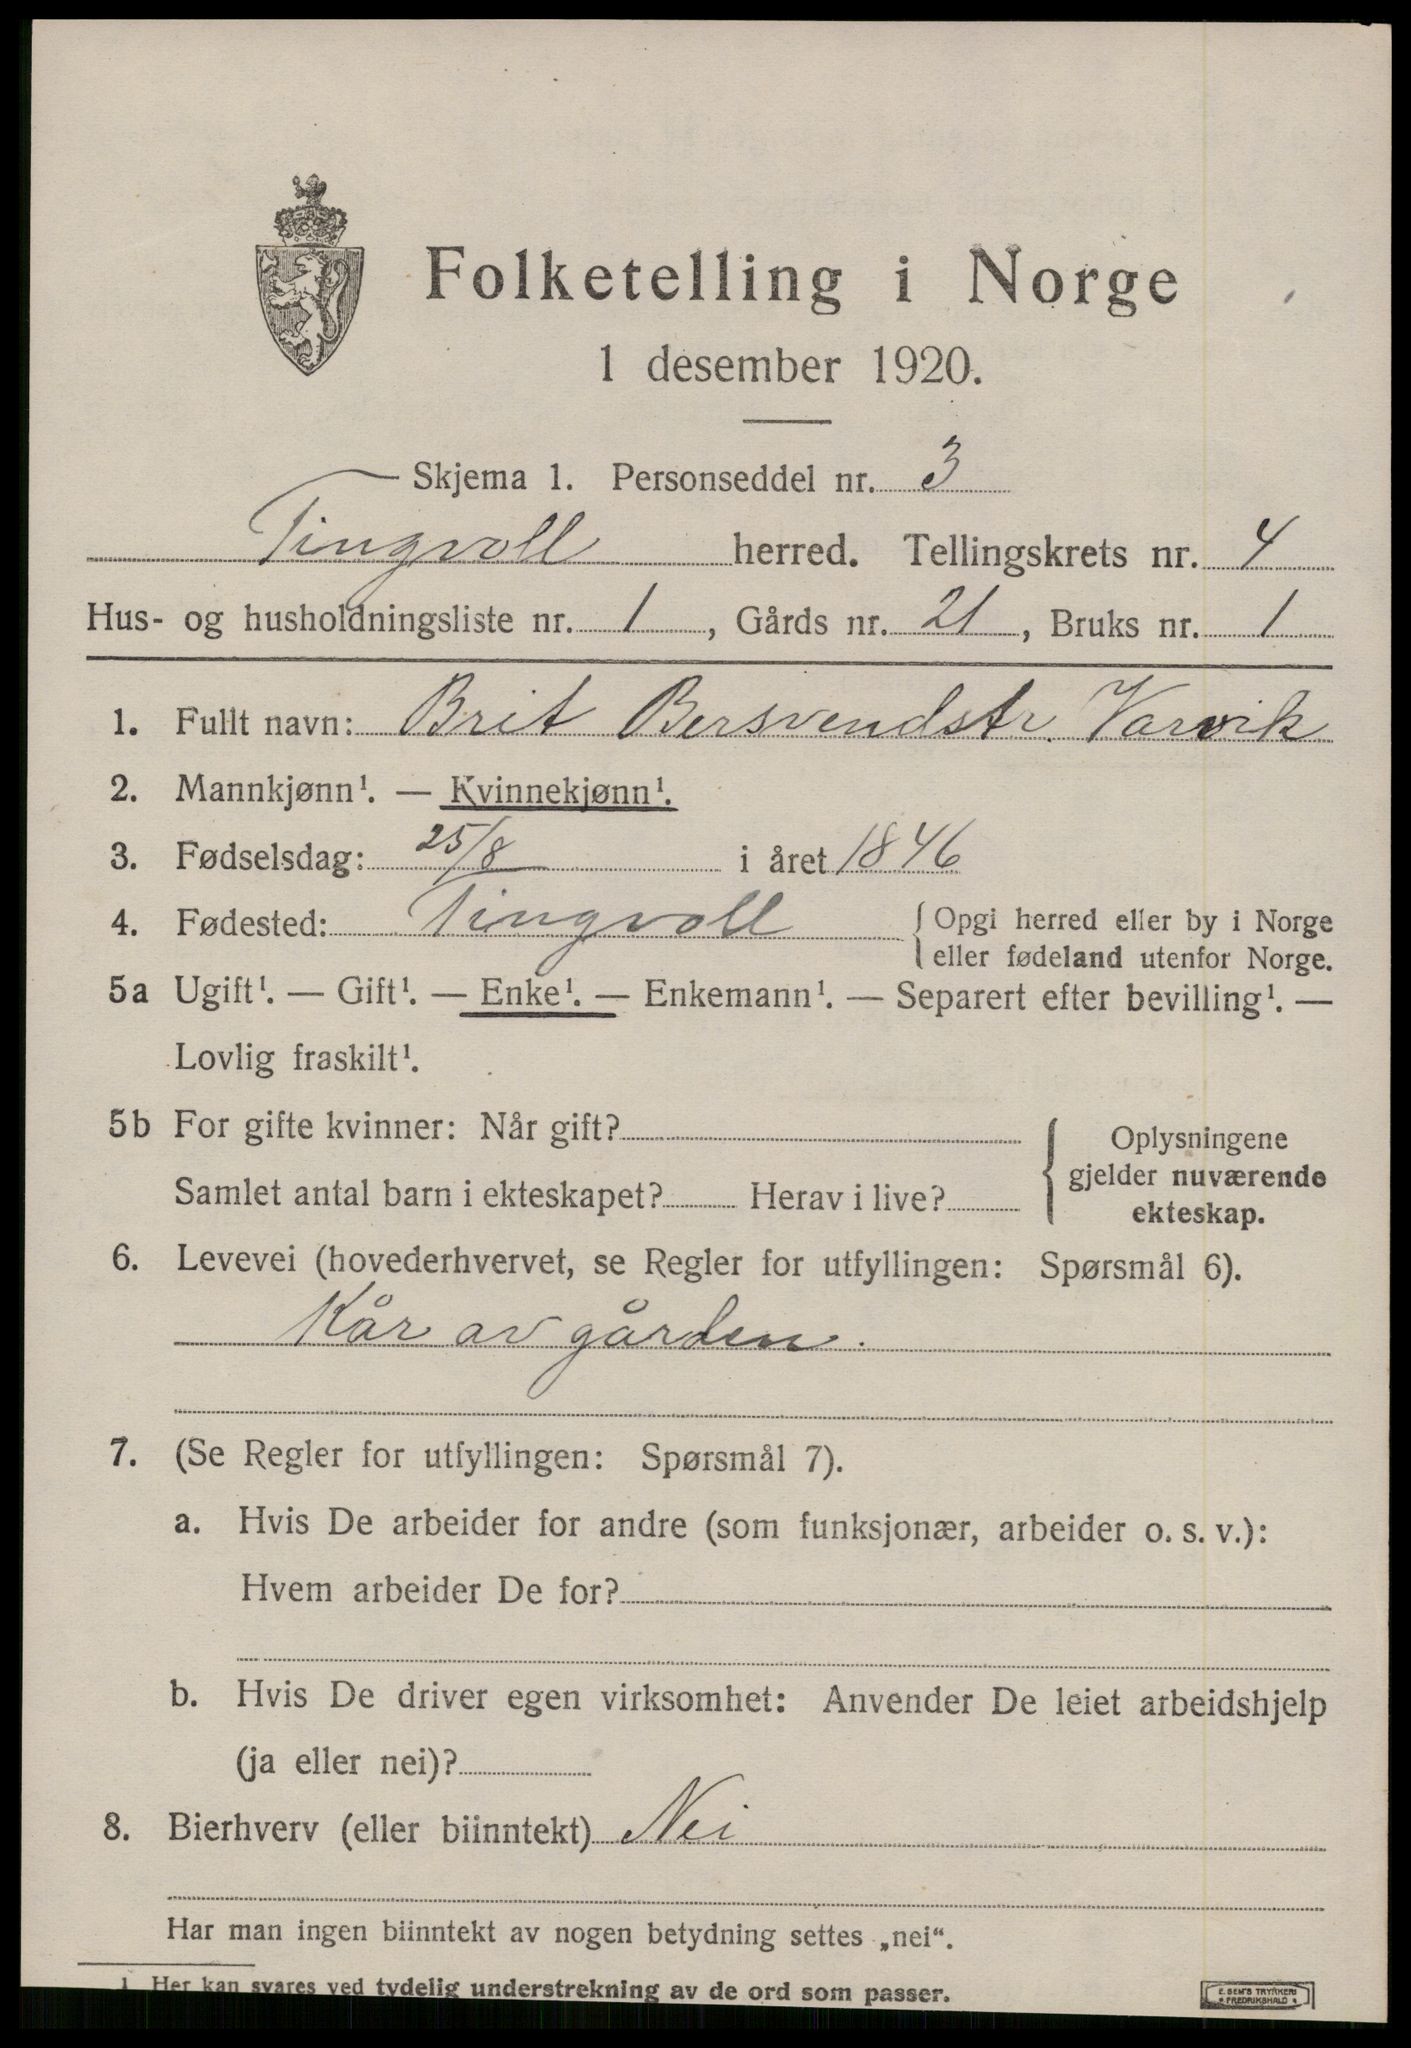 Folketelling i Norge
1 desember 1920.
Skjema 1. Personseddel nr. 3
Tingvoll herred. Tellingskrets nr. 4
Hus- og husholdningsliste nr. 1, Gårds nr. 21, Bruks nr. 1
1. Fullt navn: Brit Bersvendstr. Varvik
2. Mannkjønn¹. — Kvinnekjønn¹.
3. Fødselsdag: 25/8 i året 1846
4. Fødested: Tingvoll { Opgi herred eller by i Norge
eller fødeland utenfor Norge.
5a Ugift¹. — Gift¹. — Enke¹. — Enkemann¹. — Separert efter bevilling¹. —
Lovlig fraskilt¹.
5b For gifte kvinner: Når gift?
Samlet antal barn i ekteskapet? Herav i live?
{ Oplysningene
gjelder nuværende
ekteskap.
6. Levevei (hovederhvervet, se Regler for utfyllingen: Spørsmål 6).
Kår av gården.
7. (Se Regler for utfyllingen: Spørsmål 7).
a. Hvis De arbeider for andre (som funksjonær, arbeider o. s. v.):
Hvem arbeider De for?
b. Hvis De driver egen virksomhet: Anvender De leiet arbeidshjelp
(ja eller nei)?
8. Bierhverv (eller biinntekt) Nei
Har man ingen biinntekt av nogen betydning settes „nei“.
1 Her kan svares ved tydelig understrekning av de ord som passer.
E. SEM'S TRYKKERI
FREDRIKSHALD